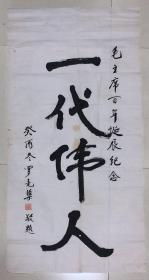 毛主席百年诞辰纪念
一代伟人
癸酉冬罗克华敬题